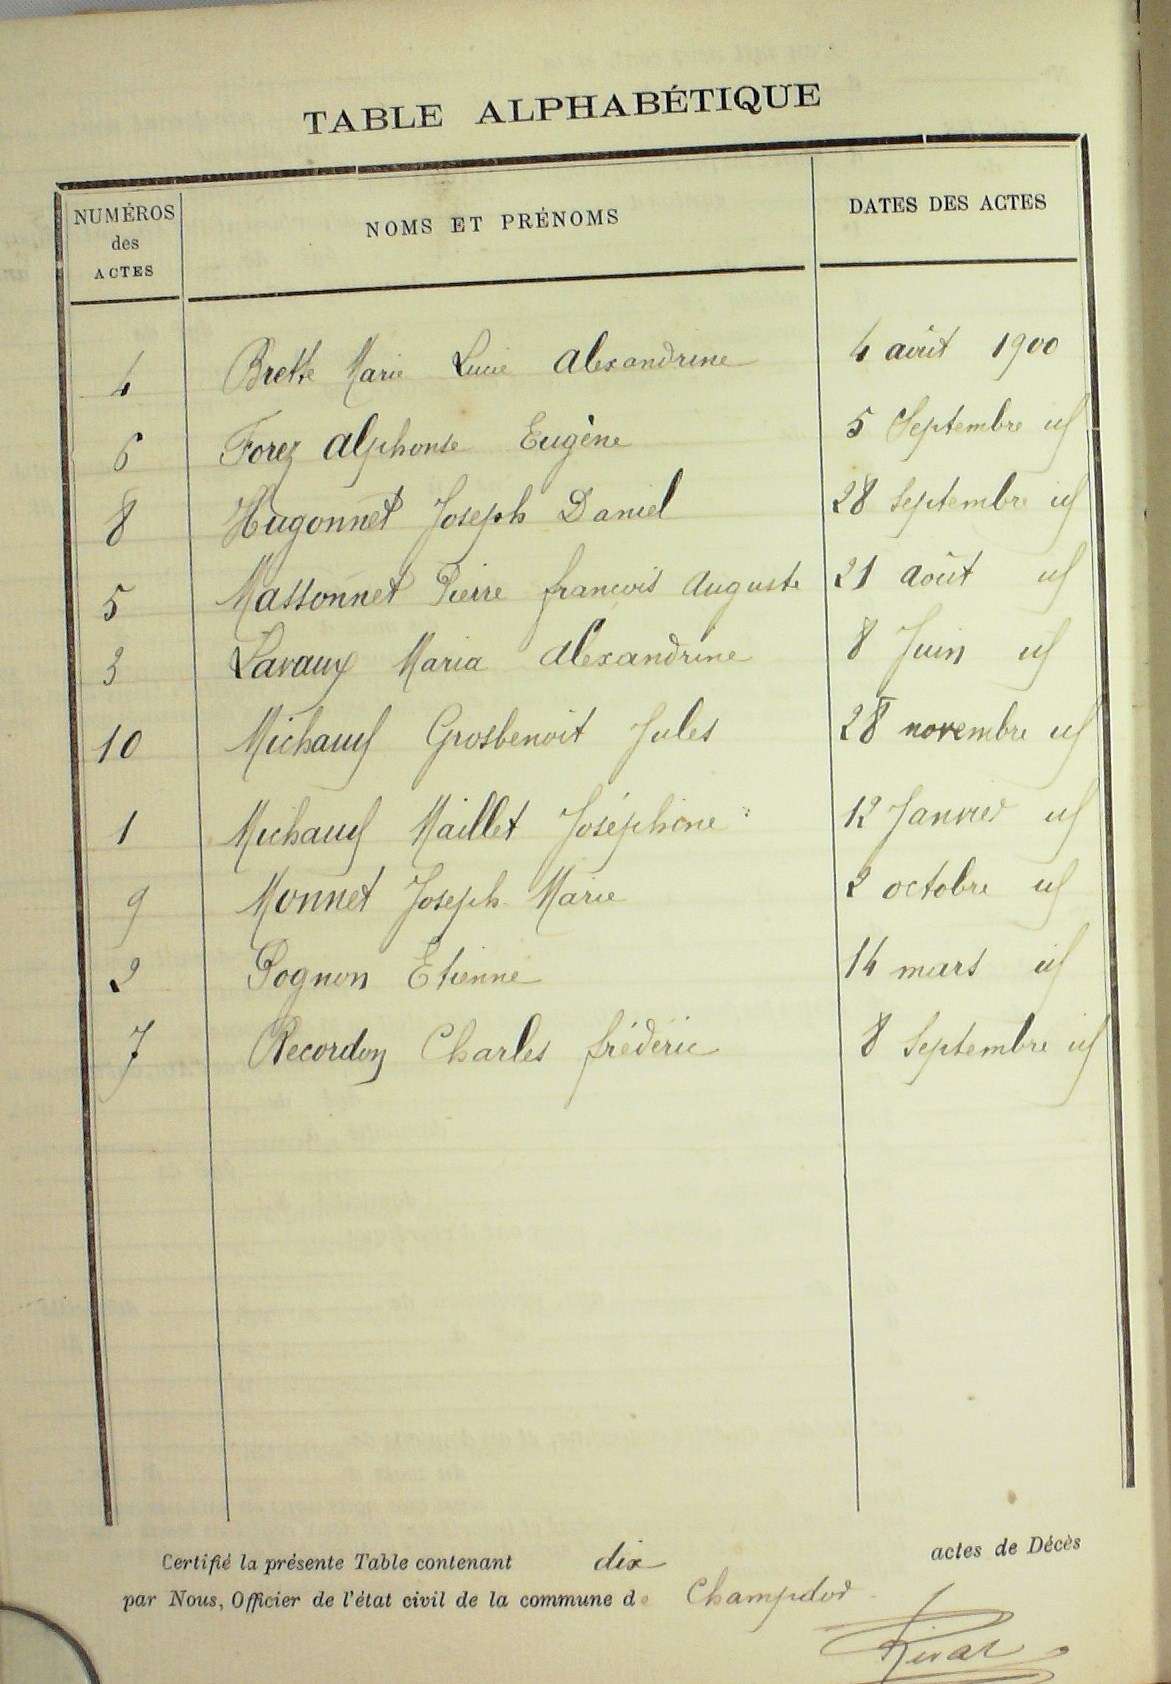 TABLE ALPHABÉTIQUE
NUMÉROS des ACTES NOMS ET PRÉNOMS DATES DES ACTES
4 Brette Marie Lucie Alexandrine 4 août 1900
6 Forez Alphonse Eugène 5 Septembre id
8 Hugonnet Joseph Daniel 28 Septembre id
5 Massonnet Pierre françois Auguste 21 Août id
3 Lavaux Maria Alexandrine 8 Juin id
10 Michaud Grosbenoit Jules 28 novembre id
1 Michaud Maillet Joséphine 12 Janvier id
9 Monnet Joseph Marie 2 octobre id
2 Pognon Etienne 14 mars id
7 Recordon Charles frédéric 8 Septembre id
Certifié la présente Table contenant dix actes de Décès
par Nous, Officier de l'état civil de la commune de Champdor